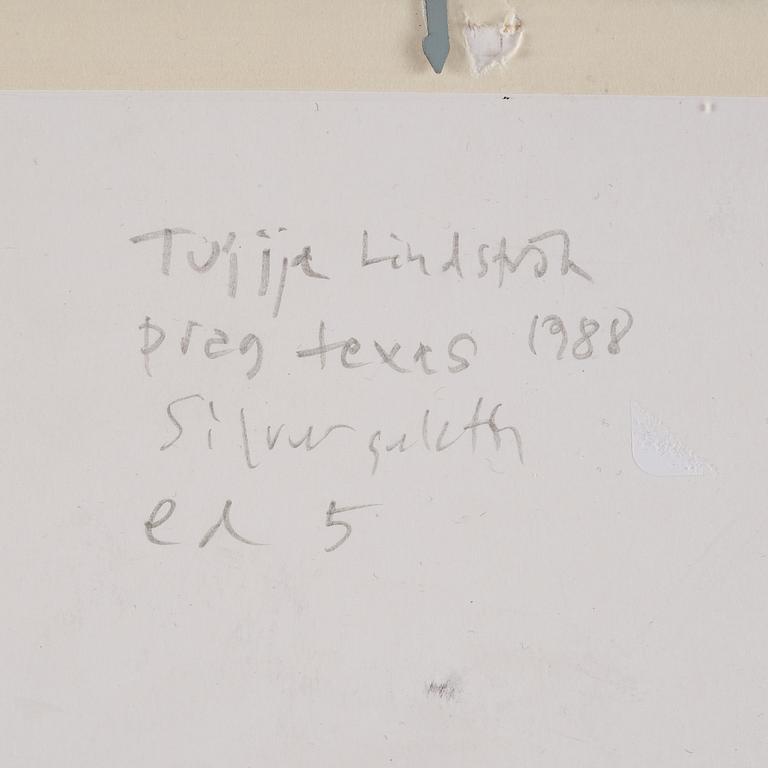 Tuija Lindström
prag texas 1988
Silver gelatin
ed 5